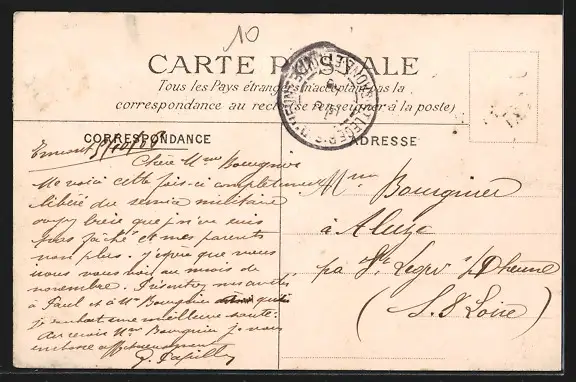 10
CARTE POSTALE
Tous les Pays étrangers n'acceptent pas la
correspondance au recto (se renseigner à la poste)
CORRESPONDANCE
ADRESSE
Chère Mme Bourgnier
Me voici cette fois-ci complètement
libéré du service militaire
croyez bien que j'n'en suis
pas fâché et mes parents
non plus. J'espère que vous
nous vous voir au mois de
novembre. Présentez mes amitiés
à Paul et à Mr Bourgnier
je souhait une meilleure santé.
Au revoir Mme Bourgnier je vous
embrasse affectueusement
Mme Bourgnier
à Aluze
par St Léger s/ Dheune
(S. & Loire)